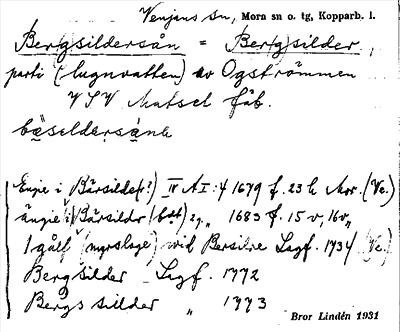 Venjans sn, Mora sn o. tg, Kopparb. l.
Ber(g)sildersån = Ber(g)silder,
parti (lugnvatten) av Ogströmmen
VSV Mutsel fäb.
bäseldersånh
Engie i Bärsilde(r?) IV A I:4 1679 f. 23 h Mor. (Ve.)
ängie i Bärsildr (bæt) eg. " 1683 f. 15 v, 16 v "
1 gålf (myrsloge) wid Bersilre Lagf. 1734 (Ve.)
Bergsilder Lagf. 1772
Bergs silder " 1773
Bror Lindén 1931